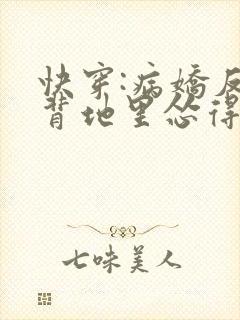 快穿:病娇反
背地里怂得
七味美人